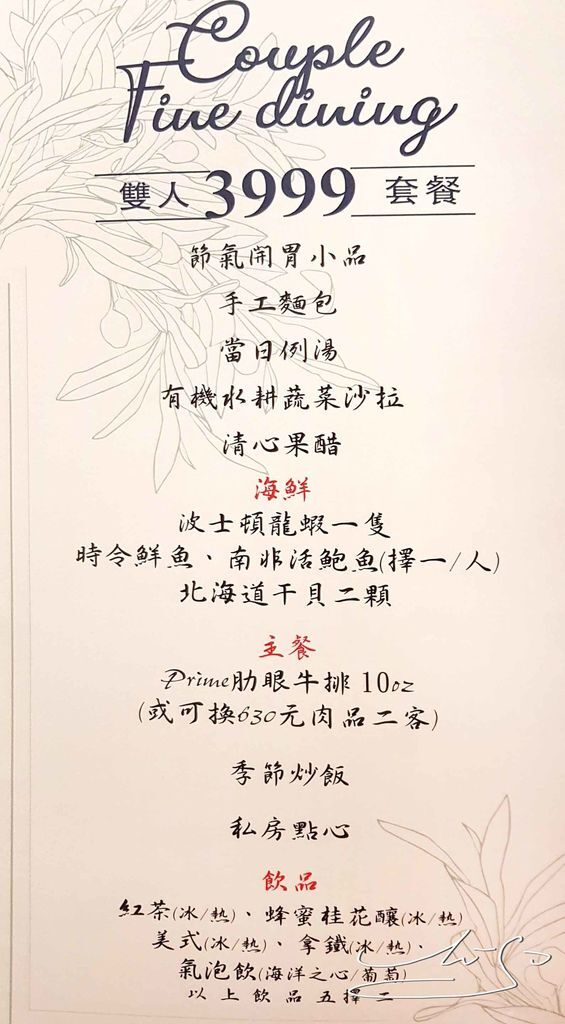 Couple
Fine dining
雙人 3999 套餐
節氣開胃小品
手工麵包
當日例湯
有機水耕蔬菜沙拉
清心果醋
海鮮
波士頓龍蝦一隻
時令鮮魚、南非活鮑魚(擇一/人)
北海道干貝二顆
主餐
Prime肋眼牛排 10oz
(或可換630元肉品二客)
季節炒飯
私房點心
飲品
紅茶(冰/熱)、蜂蜜桂花釀(冰/熱)
美式(冰/熱)、拿鐵(冰/熱)、
氣泡飲(海洋之心/葡萄)
以上飲品五擇二